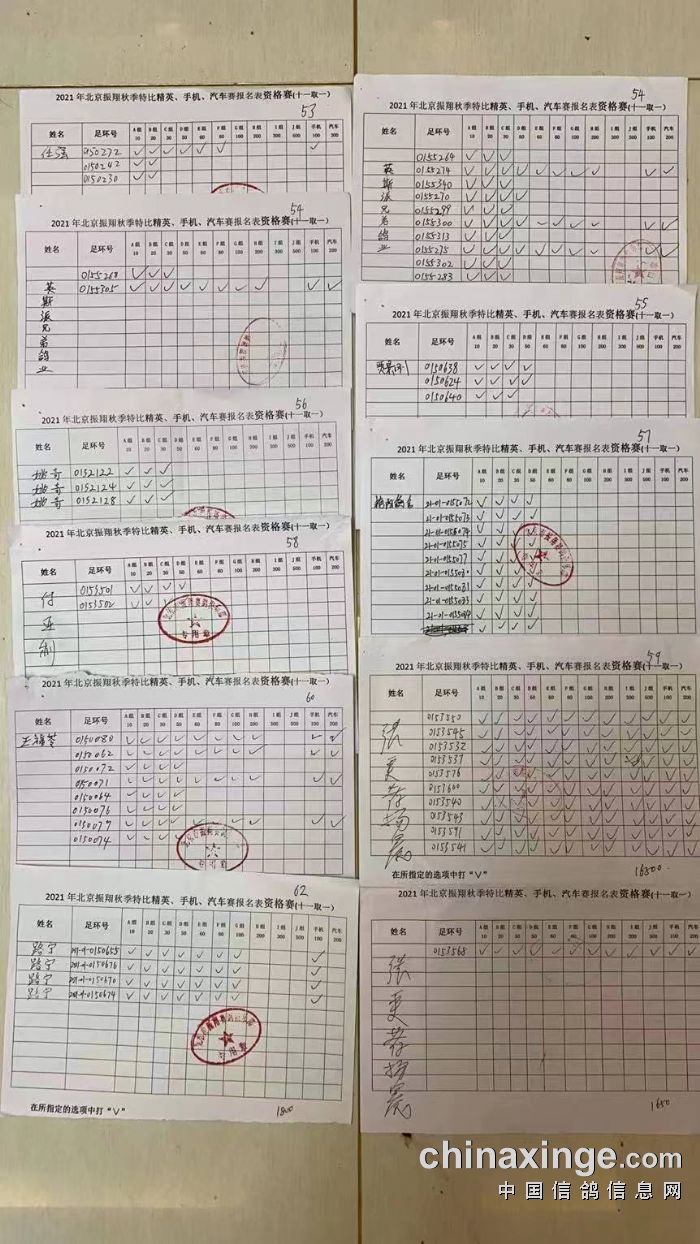 2021年北京振翔秋季特比精英、手机、汽车赛报名表资格赛(十一取一)
53
姓名 足环号 A组 10 B组 20 C组 30 D组 50 E组 60 F组 80 G组 100 H组 200 I组 300 J组 500 手机 100 汽车 200
任强 0150272 ✓ ✓ ✓ ✓ ✓ ✓ ✓
0150242 ✓ ✓
0150230 ✓ ✓
2021年北京振翔秋季特比精英、手机、汽车赛报名表资格赛(十一取一)
54
姓名 足环号 A组 10 B组 20 C组 30 D组 50 E组 60 F组 80 G组 100 H组 200 I组 300 J组 500 手机 100 汽车 200
英斯派兄弟鸽业
0155264 ✓ ✓ ✓
0155274 ✓ ✓ ✓ ✓ ✓ ✓ ✓ ✓ ✓ ✓
0155340 ✓ ✓ ✓
0155270 ✓ ✓ ✓
0155299 ✓ ✓ ✓
0155300 ✓ ✓ ✓ ✓ ✓ ✓ ✓ ✓ ✓ ✓
0155313 ✓ ✓ ✓
0155275 ✓ ✓ ✓ ✓ ✓ ✓ ✓ ✓ ✓ ✓
0155302 ✓ ✓ ✓
0155283 ✓ ✓ ✓
2021年北京振翔秋季特比精英、手机、汽车赛报名表资格赛(十一取一)
54
姓名 足环号 A组 10 B组 20 C组 30 D组 50 E组 60 F组 80 G组 100 H组 200 I组 300 J组 500 手机 100 汽车 200
英斯派兄弟鸽业
0155268 ✓ ✓ ✓
0155305 ✓ ✓ ✓ ✓ ✓ ✓ ✓ ✓ ✓ ✓
2021年北京振翔秋季特比精英、手机、汽车赛报名表资格赛(十一取一)
55
姓名 足环号 A组 10 B组 20 C组 30 D组 50 E组 60 F组 80 G组 100 H组 200 I组 300 J组 500 手机 100 汽车 200
0150638 ✓ ✓ ✓ ✓
0150624 ✓ ✓ ✓ ✓
0150640 ✓ ✓ ✓
2021年北京振翔秋季特比精英、手机、汽车赛报名表资格赛(十一取一)
56
姓名 足环号 A组 10 B组 20 C组 30 D组 50 E组 60 F组 80 G组 100 H组 200 I组 300 J组 500 手机 100 汽车 200
姚奇 0152122 ✓ ✓ ✓
姚奇 0152124 ✓ ✓ ✓
姚奇 0152128 ✓ ✓ ✓
2021年北京振翔秋季特比精英、手机、汽车赛报名表资格赛(十一取一)
57
姓名 足环号 A组 10 B组 20 C组 30 D组 50 E组 60 F组 80 G组 100 H组 200 I组 300 J组 500 手机 100 汽车 200
21-01-0155072 ✓ ✓ ✓ ✓
21-01-0155073 ✓ ✓ ✓ ✓
21-01-0155074 ✓ ✓ ✓ ✓
21-01-0155075 ✓ ✓ ✓ ✓
21-01-0155077 ✓ ✓ ✓ ✓
21-01-0155080 ✓ ✓ ✓ ✓
21-01-0155081 ✓ ✓ ✓ ✓
21-01-0155083 ✓ ✓ ✓ ✓
2021年北京振翔秋季特比精英、手机、汽车赛报名表资格赛(十一取一)
58
姓名 足环号 A组 10 B组 20 C组 30 D组 50 E组 60 F组 80 G组 100 H组 200 I组 300 J组 500 手机 100 汽车 200
0153501 ✓ ✓ ✓ ✓
0153502 ✓ ✓ ✓ ✓
专用章
2021年北京振翔秋季特比精英、手机、汽车赛报名表资格赛(十一取一)
59
姓名 足环号 A组 10 B组 20 C组 30 D组 50 E组 60 F组 80 G组 100 H组 200 I组 300 J组 500 手机 100 汽车 200
张更荐 杨宽
0153550 ✓ ✓ ✓ ✓ ✓ ✓ ✓ ✓ ✓ ✓ ✓ ✓
0153545 ✓ ✓ ✓ ✓ ✓ ✓ ✓ ✓ ✓ ✓ ✓ ✓
0153532 ✓ ✓ ✓ ✓ ✓ ✓ ✓ ✓ ✓ ✓ ✓ ✓
0153537 ✓ ✓ ✓ ✓ ✓ ✓ ✓ ✓ ✓ ✓ ✓ ✓
0153576 ✓ ✓ ✓ ✓ ✓ ✓ ✓ ✓ ✓ ✓ ✓ ✓
0153600 ✓ ✓ ✓ ✓ ✓ ✓ ✓ ✓ ✓ ✓ ✓ ✓
0153540 ✓ ✓ ✓ ✓ ✓ ✓ ✓ ✓ ✓ ✓ ✓ ✓
0153543 ✓ ✓ ✓ ✓ ✓ ✓ ✓ ✓ ✓ ✓ ✓ ✓
0153591 ✓ ✓ ✓ ✓ ✓ ✓ ✓ ✓ ✓ ✓ ✓ ✓
0153541 ✓ ✓ ✓ ✓ ✓ ✓ ✓ ✓ ✓ ✓ ✓ ✓
在所指定的选项中打“V” 16500
2021年北京振翔秋季特比精英、手机、汽车赛报名表资格赛(十一取一)
60
姓名 足环号 A组 10 B组 20 C组 30 D组 50 E组 60 F组 80 G组 100 H组 200 I组 300 J组 500 手机 100 汽车 200
0150080 ✓ ✓ ✓ ✓ ✓ ✓ ✓ ✓ ✓ ✓
0150062 ✓ ✓ ✓ ✓ ✓ ✓ ✓ ✓ ✓ ✓
0150072 ✓ ✓ ✓ ✓
0150071 ✓ ✓ ✓ ✓ ✓ ✓ ✓ ✓ ✓ ✓
0150064 ✓ ✓ ✓ ✓
0150076 ✓ ✓ ✓ ✓
0150079 ✓ ✓ ✓ ✓ ✓ ✓ ✓ ✓ ✓ ✓
0150074 ✓ ✓ ✓ ✓
2021年北京振翔秋季特比精英、手机、汽车赛报名表资格赛(十一取一)
62
姓名 足环号 A组 10 B组 20 C组 30 D组 50 E组 60 F组 80 G组 100 H组 200 I组 300 J组 500 手机 100 汽车 200
路宁 2021-01-0150655 ✓ ✓ ✓ ✓ ✓ ✓ ✓ ✓
路宁 2021-01-0150676 ✓ ✓ ✓ ✓ ✓ ✓ ✓ ✓
路宁 2021-01-0150670 ✓ ✓ ✓ ✓ ✓ ✓ ✓ ✓
路宁 2021-01-0150674 ✓ ✓ ✓ ✓ ✓ ✓ ✓ ✓
专用章
在所指定的选项中打“V” 1800
2021年北京振翔秋季特比精英、手机、汽车赛报名表资格赛(十一取一)
姓名 足环号 A组 10 B组 20 C组 30 D组 50 E组 60 F组 80 G组 100 H组 200 I组 300 J组 500 手机 100 汽车 200
张更荐 杨宽
0153568 ✓ ✓ ✓ ✓ ✓ ✓ ✓ ✓ ✓ ✓ ✓ ✓
1650
chinaxinge.com
中国信鸽信息网